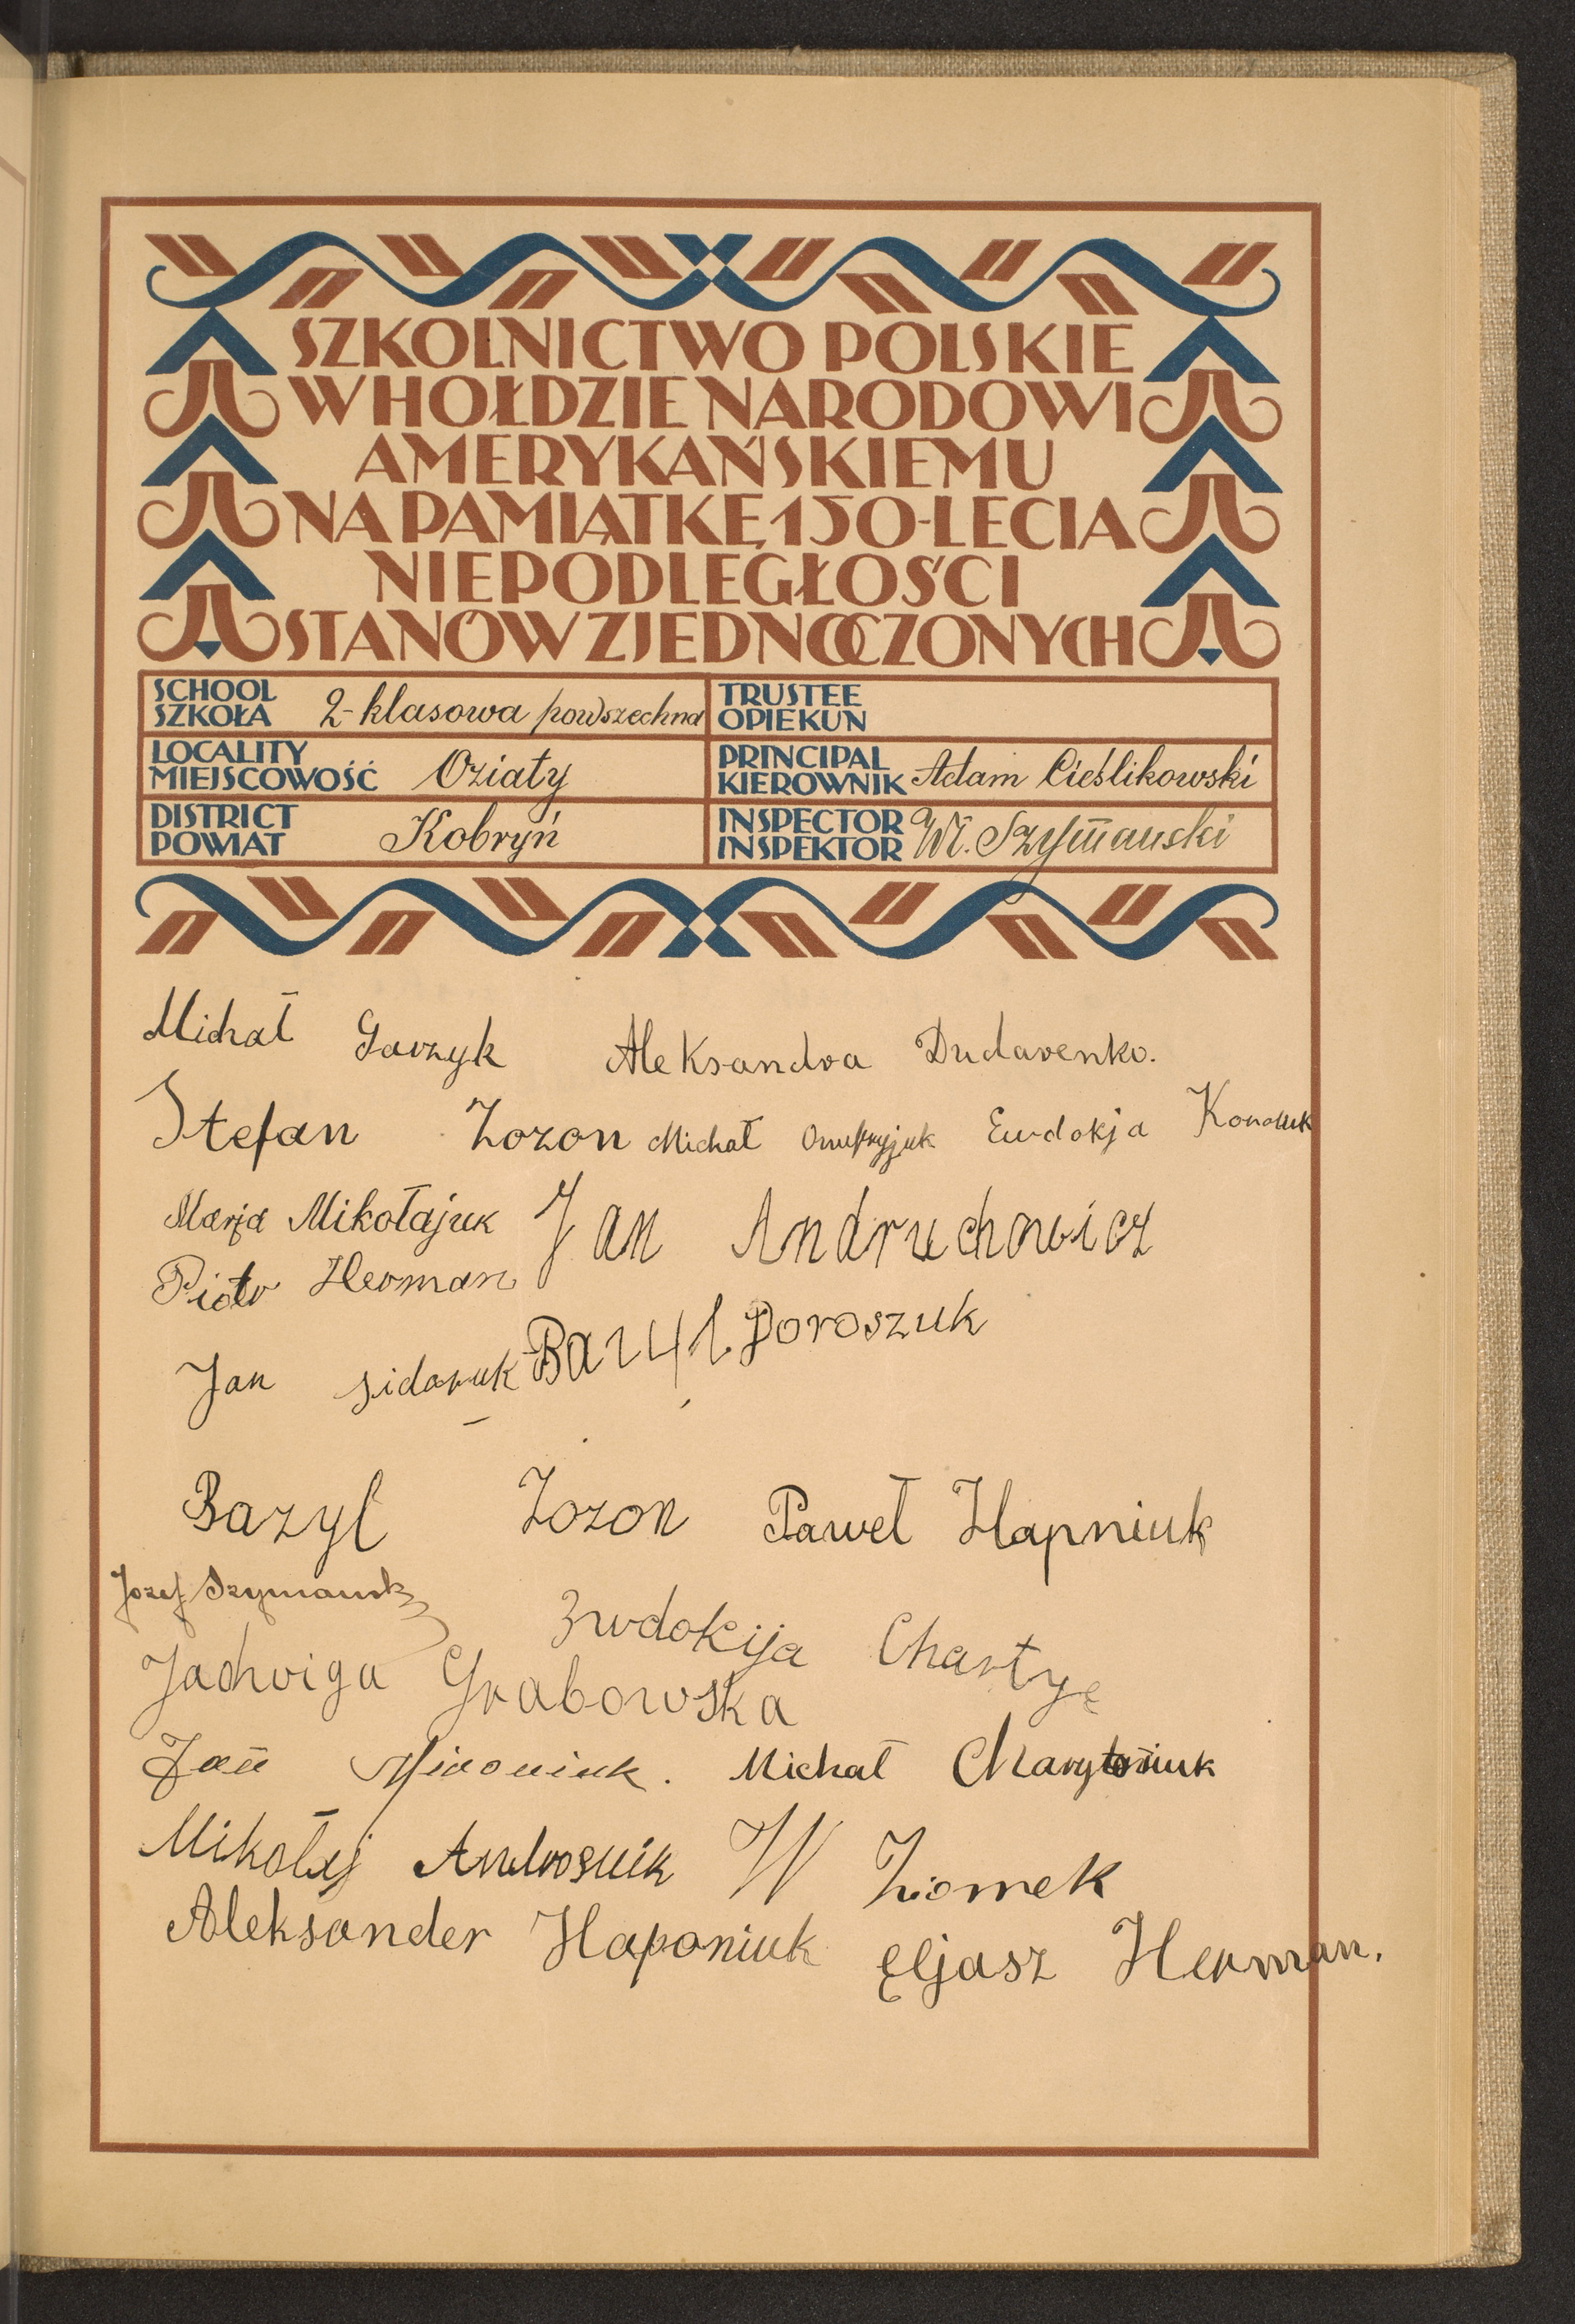 SZKOLNICTWO POLSKIE
W HOŁDZIE NARODOWI
AMERYKAŃSKIEMU
NA PAMIĄTKĘ 150-LECIA
NIEPODLEGŁOŚCI
STANÓW ZJEDNOCZONYCH
SCHOOL
SZKOŁA 2-klasowa powszechna
TRUSTEE
OPIEKUN
LOCALITY
MIEJSCOWOŚĆ Oziaty
PRINCIPAL
KIEROWNIK Adam Cieślikowski
DISTRICT
POWIAT Kobryń
INSPECTOR
INSPEKTOR Wł. Szymański
Michał Garzyk Aleksandra Dudarenko.
Stefan Zozon Michał Onufryjuk Ewdokja Konciuk
Marja Mikołajuk Jan Andruchowicz
Piotr Herman
Jan Sidaruk Bazyl Doroszuk
Bazyl Zozon Paweł Hapniuk
Jozef Szymansk
Ewdokija
Jadwiga Grabowska
Jan Mironiuk. Michał Charytoniuk
Mikołaj Androsiuk W Ziomek
Aleksander Haponiuk Eljasz Herman.